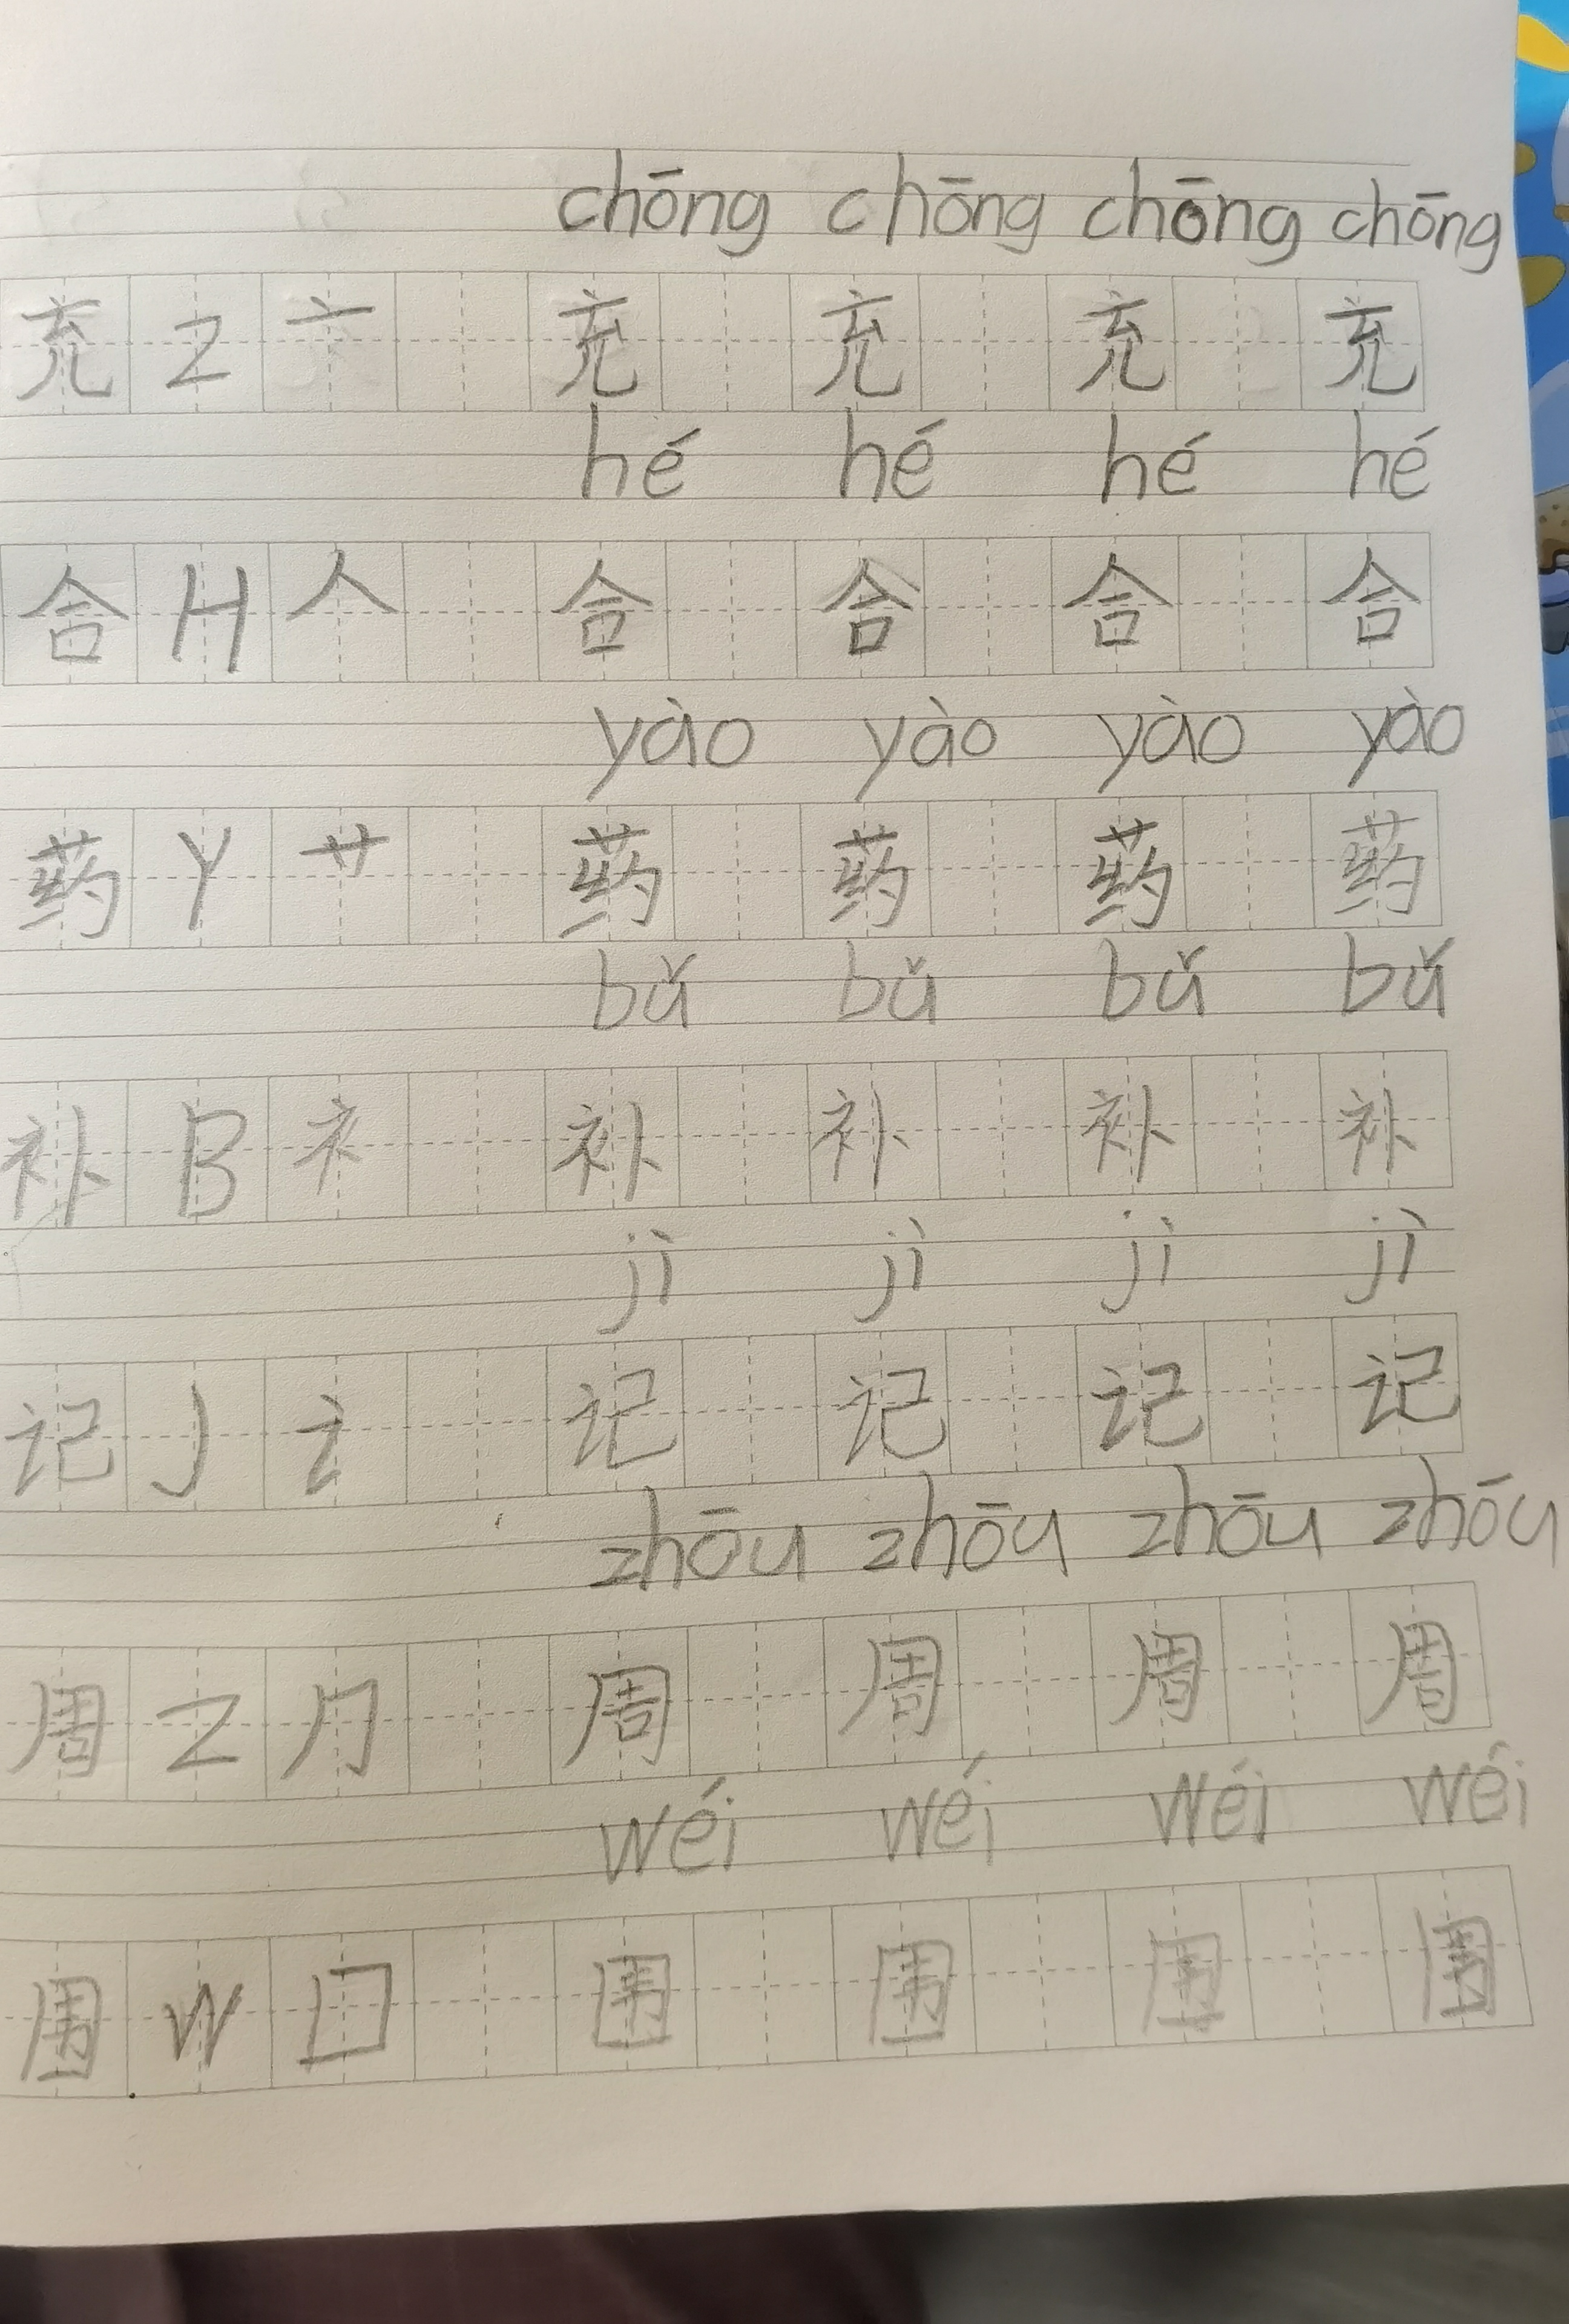 chōng chōng chōng chōng
充 Z 亠 充 充 充 充
hé hé hé hé
合 H 人 合 合 合 合
yào yào yào yào
药 Y 艹 药 药 药 药
bǔ bǔ bǔ bǔ
补 B 衤 补 补 补 补
jì jì jì jì
记 J 讠 记 记 记 记
zhōu zhōu zhōu zhōu
周 Z 冂 周 周 周 周
wéi wéi wéi wéi
围 W 囗 围 围 围 围